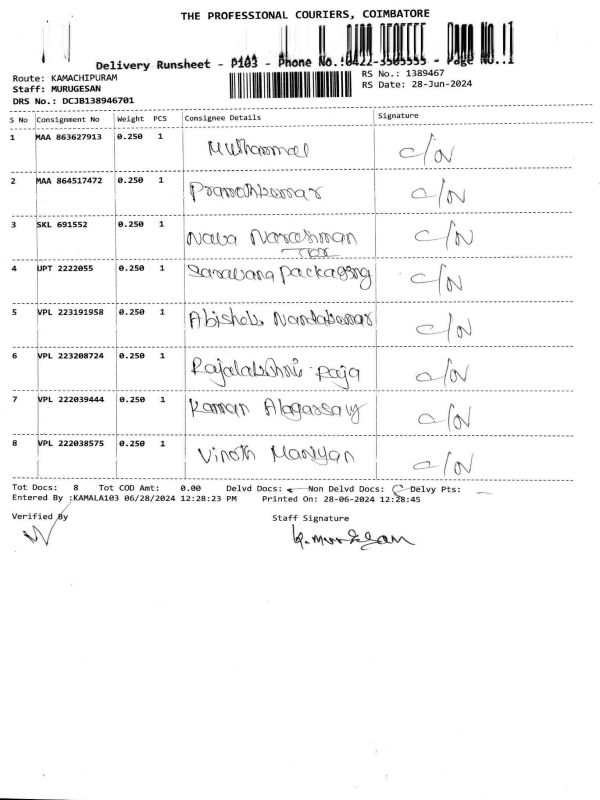 THE PROFESSIONAL COURIERS, COIMBATORE
Delivery Runsheet - P103 - Phone No.:0422-3505555 - Page No.:1
Route: KAMACHIPURAM
RS No.: 1389467
Staff: MURUGESAN
RS Date: 28-Jun-2024
DRS No.: DCJB138946701
S No Consignment No Weight PCS Consignee Details Signature
1 MAA 863627913 0.250 1 Muthammal C/N
2 MAA 864517472 0.250 1 C/N
3 SKL 691552 0.250 1 Nava C/N
4 UPT 2222055 0.250 1 Saravana Packaging C/N
5 VPL 223191958 0.250 1 C/N
6 VPL 223208724 0.250 1 Raja C/N
7 VPL 222039444 0.250 1 C/N
8 VPL 222038575 0.250 1 Vinoth C/N
Tot Docs: 8 Tot COD Amt: 0.00 Delvd Docs: Non Delvd Docs: Delvy Pts:
Entered By :KAMALA103 06/28/2024 12:28:23 PM Printed On: 28-06-2024 12:28:45
Verified By Staff Signature